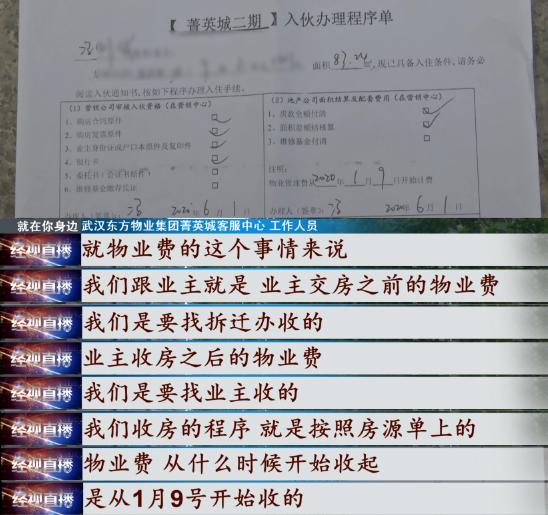 【 菁英城二期 】入伙办理程序单
面积 83.24 ,现已具备入住条件,请务必
阅读入伙通知书,按如下程序办理入住手续。
(1)营销公司审核入伙资格(在营销中心)
1、购房合同原件
2、购房发票原件
3、业主身份证或户口本原件及复印件
4、银行卡
5、委托书(公证书原件)
6、维修基金缴存凭证
办理人(签章): 2020 年 6 月 1 日
(2)地产公司面积结算及配套费用(在营销中心)
1、房款全额付清
2、面积差额结核算
3、维修基金付清
注明:
物业管理费从 2020 年 1 月 9 日开始计费
办理人(签章): 2020 年 6 月 1 日
就在你身边 武汉东方物业集团菁英城客服中心 工作人员
经视直播 就物业费的这个事情来说
经视直播 我们跟业主就是 业主交房之前的物业费
经视直播 我们是要找拆迁办收的
经视直播 业主收房之后的物业费
经视直播 我们是要找业主收的
经视直播 我们收房的程序 就是按照房源单上的
经视直播 物业费 从什么时候开始收起
经视直播 是从1月9号开始收的